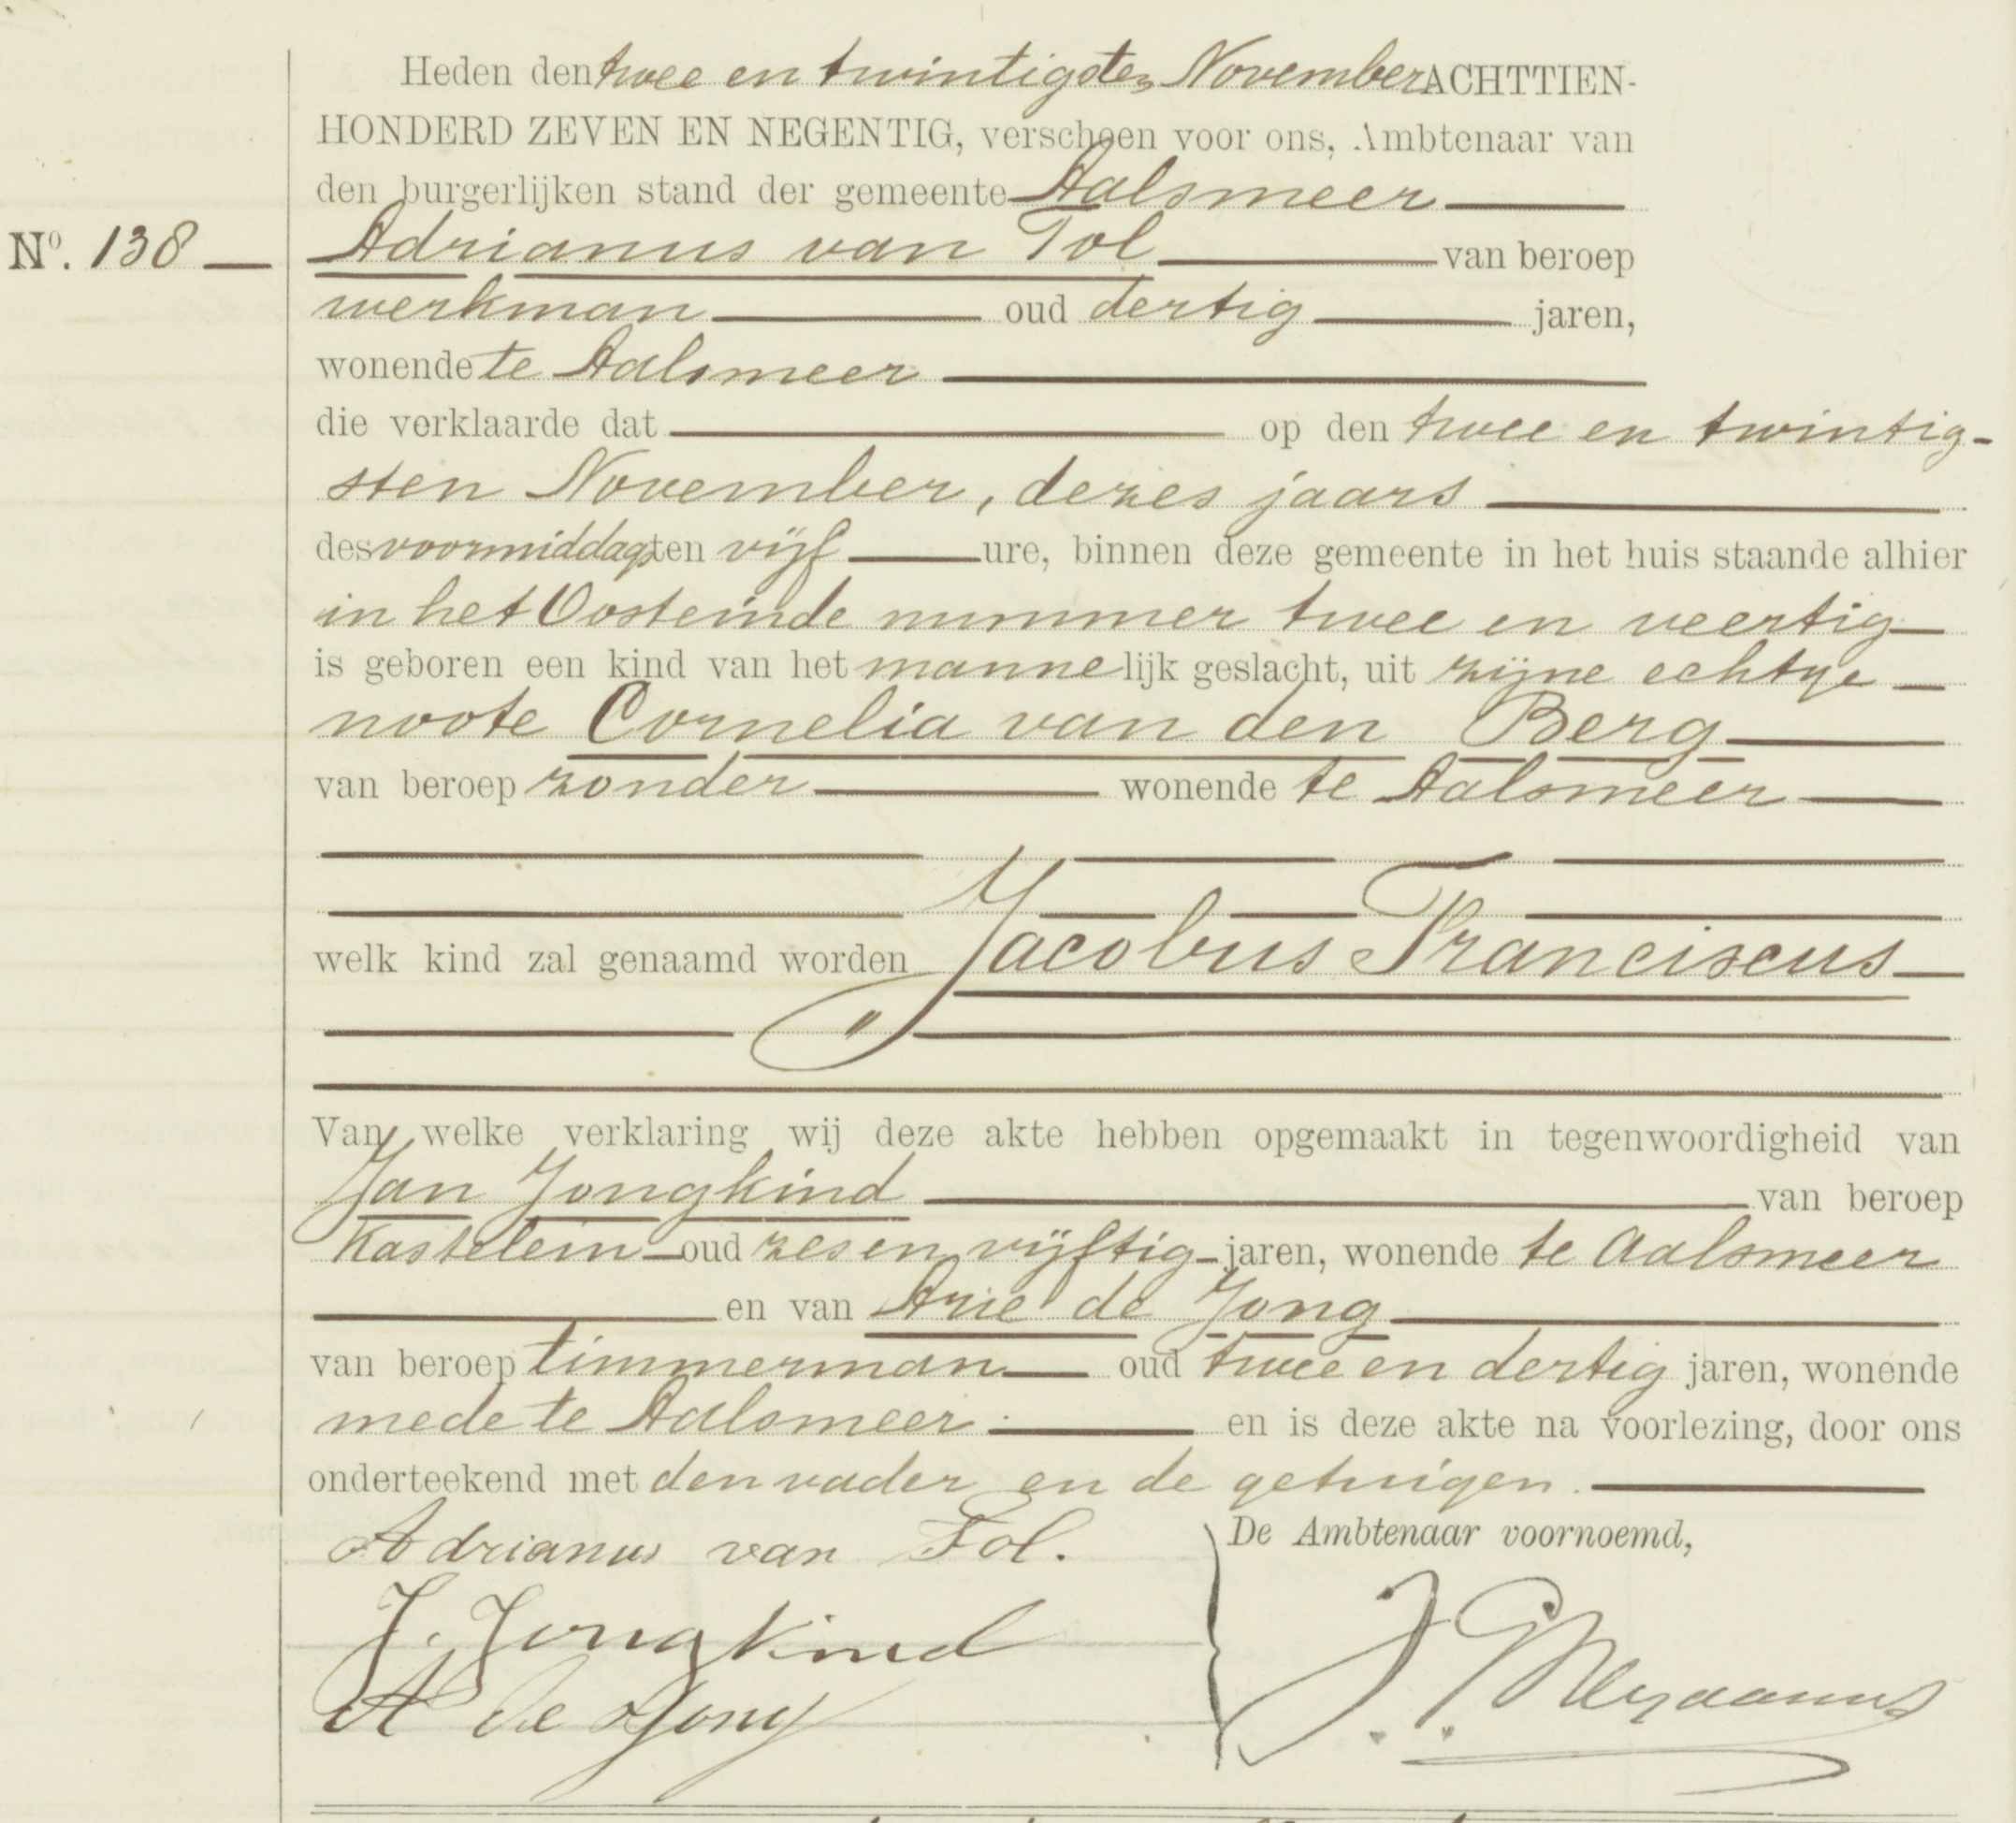 Heden den twee en twintigsten November ACHTTIEN-
HONDERD ZEVEN EN NEGENTIG, verscheen voor ons, Ambtenaar van
den burgerlijken stand der gemeente Aalsmeer
No. 138
Adrianus van Tol van beroep
werkman oud dertig jaren,
wonende te Aalsmeer
die verklaarde dat op den twee en twintig-
sten November, dezes jaars
des voormiddags ten vijf ure, binnen deze gemeente in het huis staande alhier
in het Oosteinde nummer twee en veertig
is geboren een kind van het mannelijk geslacht, uit zijne echtge
noote Cornelia van den Berg
van beroep zonder wonende te Aalsmeer
welk kind zal genaamd worden Jacobus Franciscus
Van welke verklaring wij deze akte hebben opgemaakt in tegenwoordigheid van
Jan Jongkind van beroep
Kastelein oud zes en vijftig jaren, wonende te Aalsmeer
en van Arie de Jong
van beroep timmerman oud twee en dertig jaren, wonende
mede te Aalsmeer en is deze akte na voorlezing, door ons
onderteekend met den vader en de getuigen.
Adrianus van Tol.
De Ambtenaar voornoemd,
J. Jongkind
A de Jong